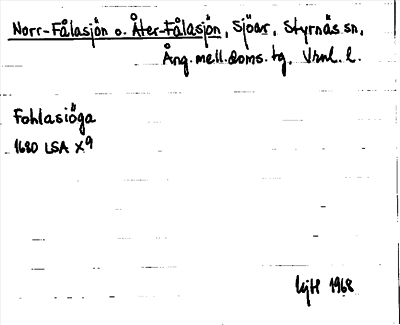 Norr-Fålasjön o. Åter-Fålasjön, Sjöar, Styrnäs sn,
Ång. mell. doms. tg, Vrnl. l.
Fohlasiöga
1680 LSA X9
1968